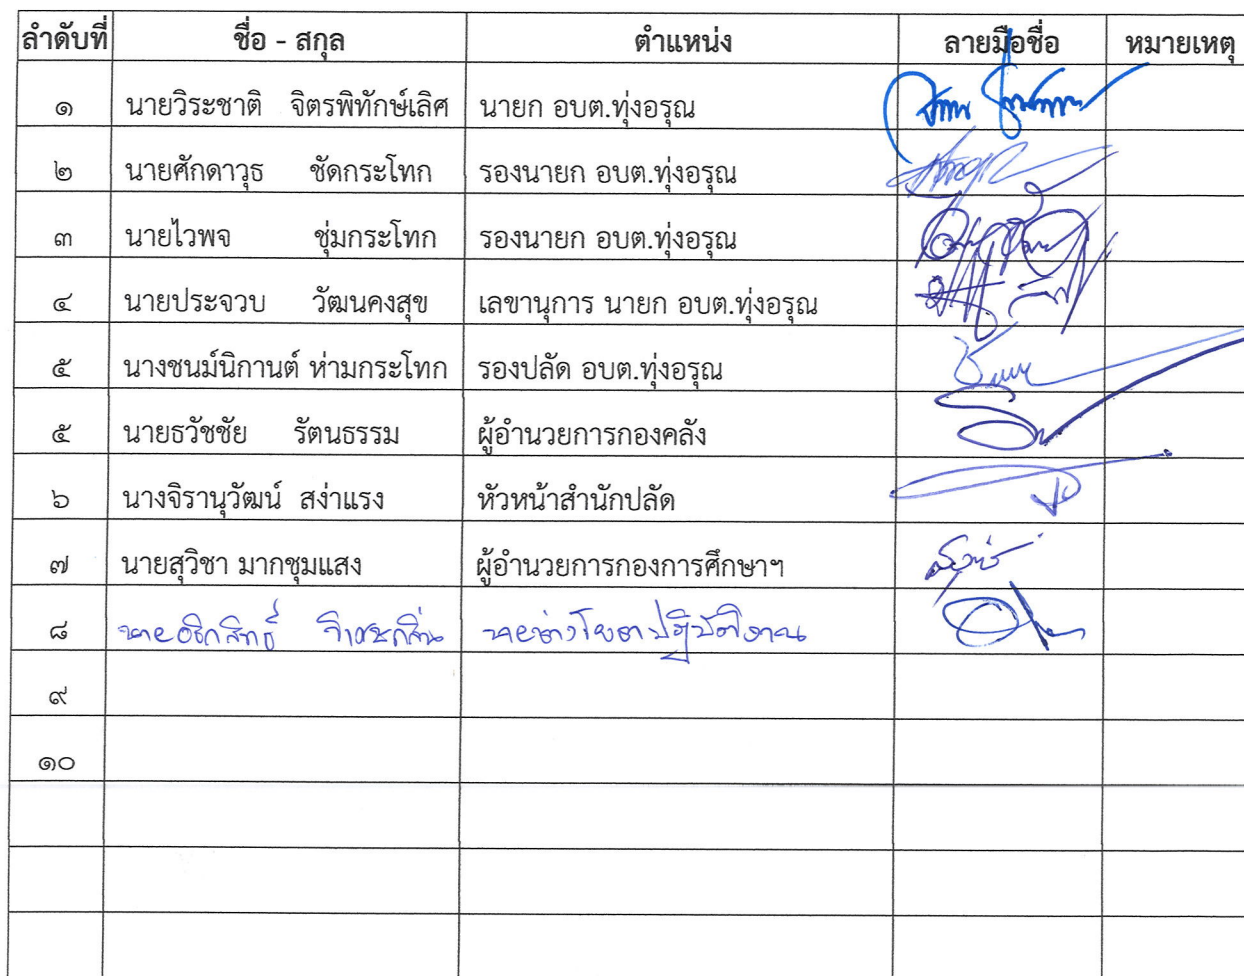 ลำดับที่ ชื่อ - สกุล ตำแหน่ง ลายมือชื่อ หมายเหตุ
๑ นายวิระชาติ จิตรพิทักษ์เลิศ นายก อบต.ทุ่งอรุณ
๒ นายศักดาวุธ ชัดกระโทก รองนายก อบต.ทุ่งอรุณ
๓ นายไวพจ ชุ่มกระโทก รองนายก อบต.ทุ่งอรุณ
๔ นายประจวบ วัฒนคงสุข เลขานุการ นายก อบต.ทุ่งอรุณ
๕ นางชนม์นิกานต์ ห่ามกระโทก รองปลัด อบต.ทุ่งอรุณ
๕ นายธวัชชัย รัตนธรรม ผู้อำนวยการกองคลัง
๖ นางจิรานุวัฒน์ สง่าแรง หัวหน้าสำนักปลัด
๗ นายสุวิชา มากชุมแสง ผู้อำนวยการกองการศึกษาฯ
๘ นายช่างโยธาปฏิบัติงาน
๙
๑๐